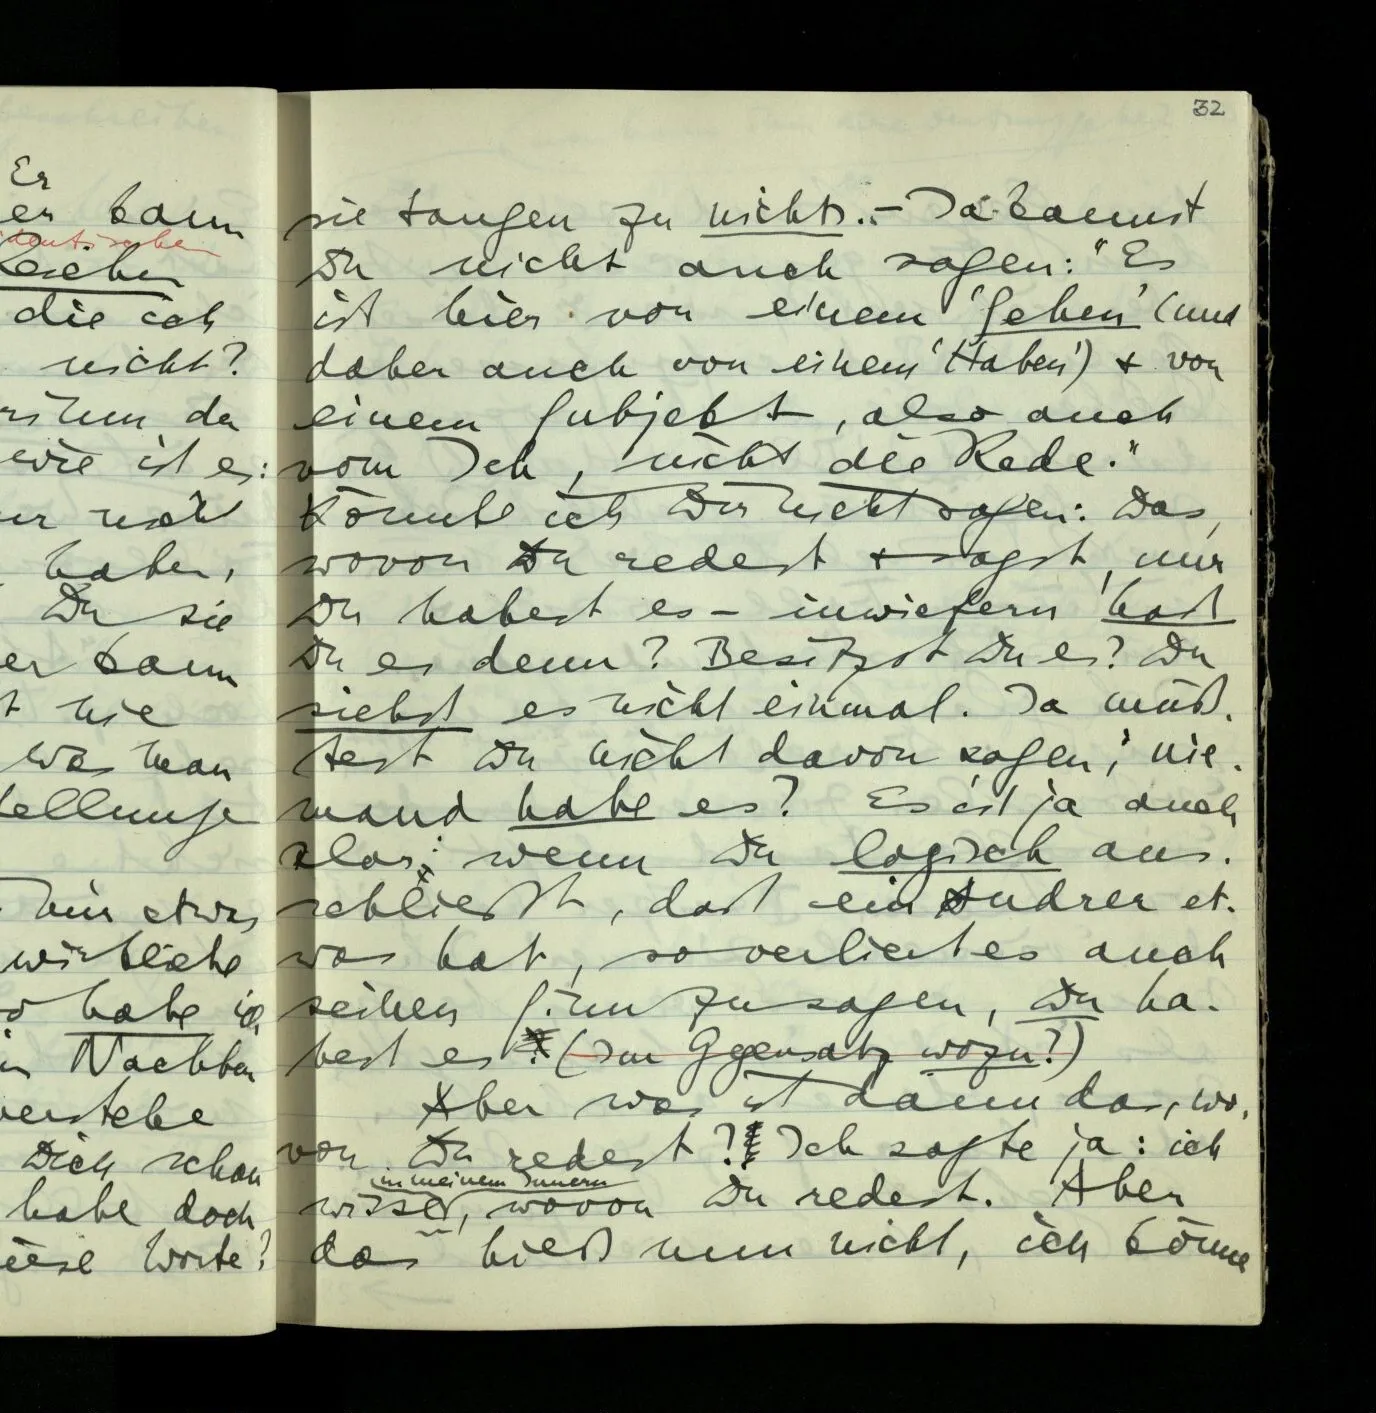 32
Er
er kann
identischen
Rechen
die ich
nicht?
rinn da
wie ist es:
ur nicht
haben,
Du sie
er kann
t nie
was man
tellunge
mir etwas
wirkliche
habe ich
n Nachbar
verstehe
Dich schon
habe doch
iese Worte?
sie taugen zu nichts. – Ja kannst
Du nicht auch sagen: "Es
ist hier von einem 'Sehen' (und
daher auch von einem 'Haben') + von
einem Subjekt, also auch
vom Ich, nicht die Rede."
Könnte ich Dir nicht sagen: Das,
wovon Du redest + sagst, nur
Du habest es – inwiefern hast
Du es denn? Besitzst Du es? Du
siehst es nicht einmal. Ja müß-
test Du nicht davon sagen, nie-
mand habe es? Es ist ja auch
klar: wenn Du logisch aus-
schließt, daß ein Andrer et-
was hat, so verliert es auch
seinen Sinn zu sagen, Du ha-
best es. (Im Ggensatz wozu?)
Aber was ist dann das, wo-
von Du redest? Ich sagte ja: ich
in meinem Innern
wisse, wovon Du redest. Aber
das hieß nun nicht, ich könne